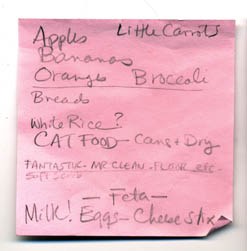 Apples Little Carrots
Bananas
Oranges Broccoli
Breads
White Rice?
CAT FOOD - Cans + Dry
FANTASTIK - MR CLEAN - FLOOR etc -
SOFT SCRUB
- Feta -
Milk! Eggs - Cheese stix